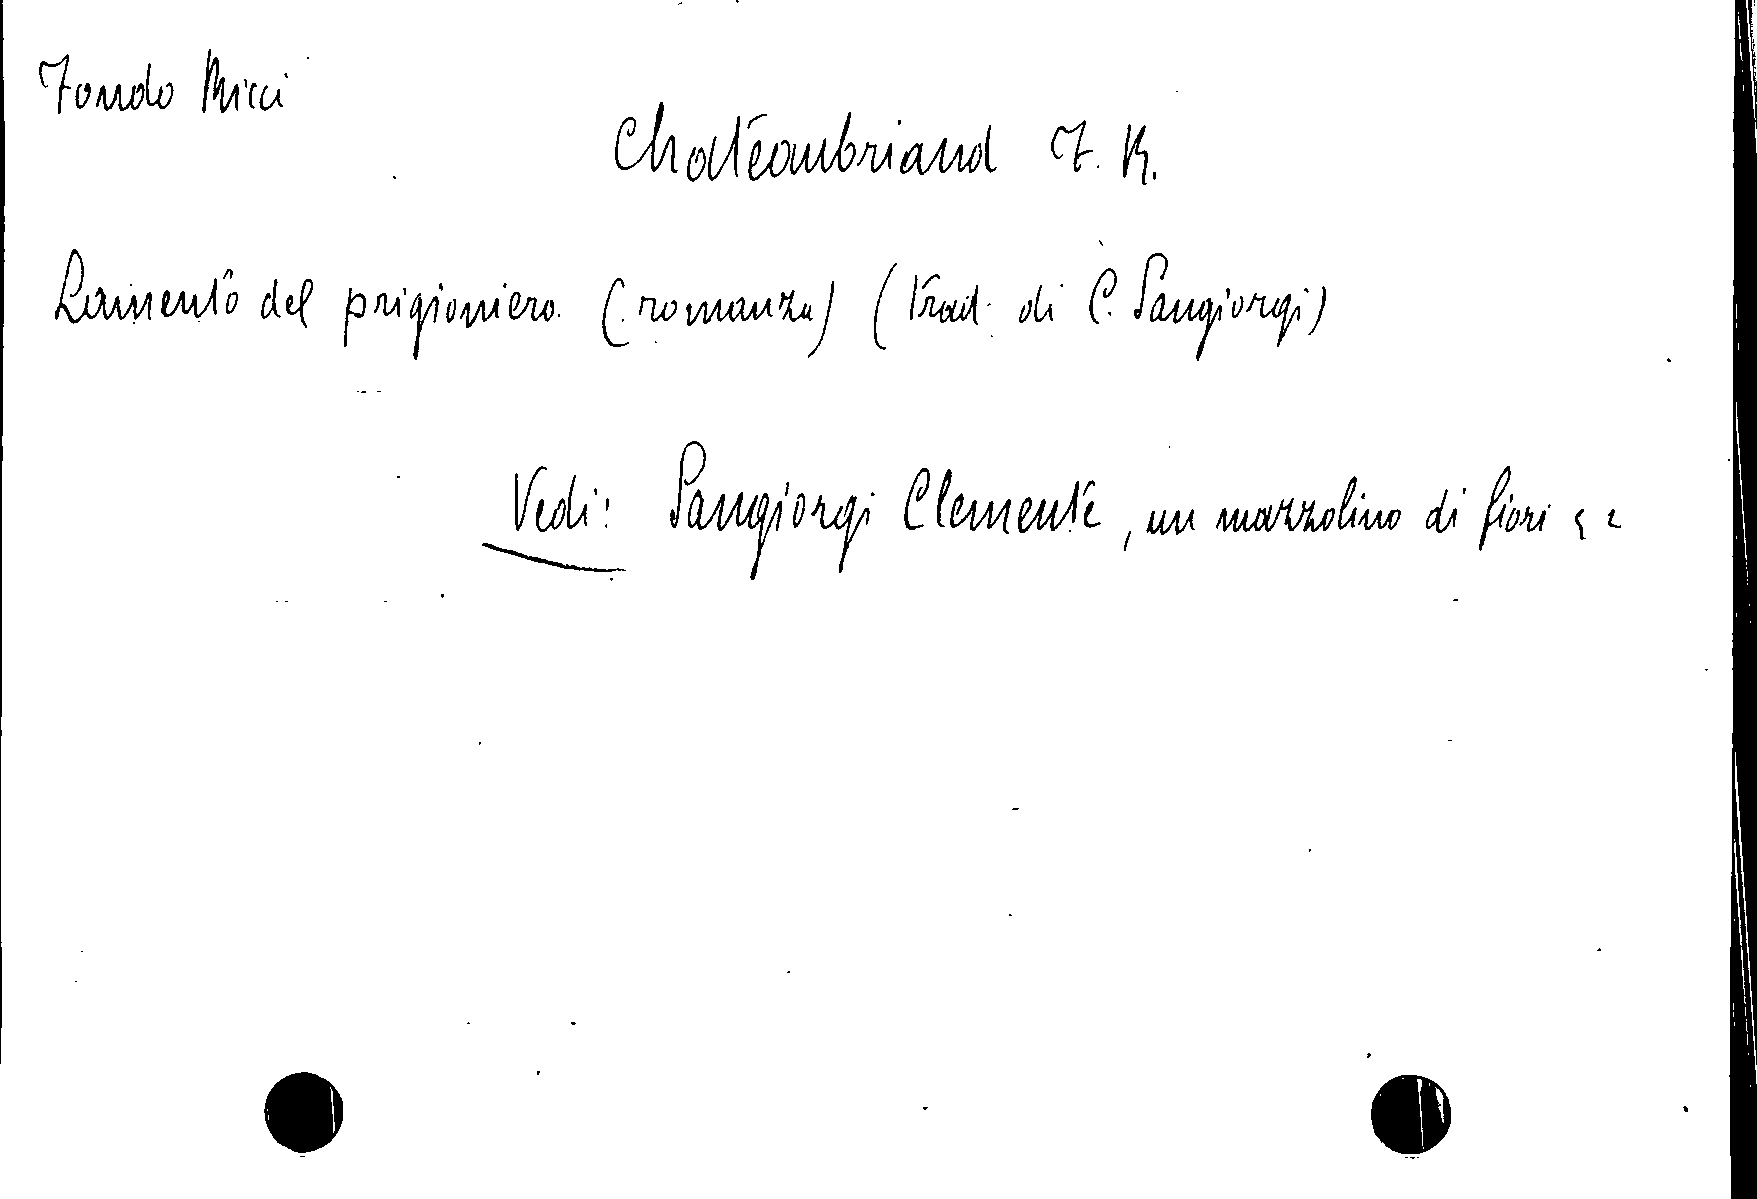 Fondo Ricci
Chateaubriand F. R.
Lamento del prigioniero (romanza) (Trad. di C. Sangiorgi)
Vedi: Sangiorgi Clemente, un mazzolino di fiori